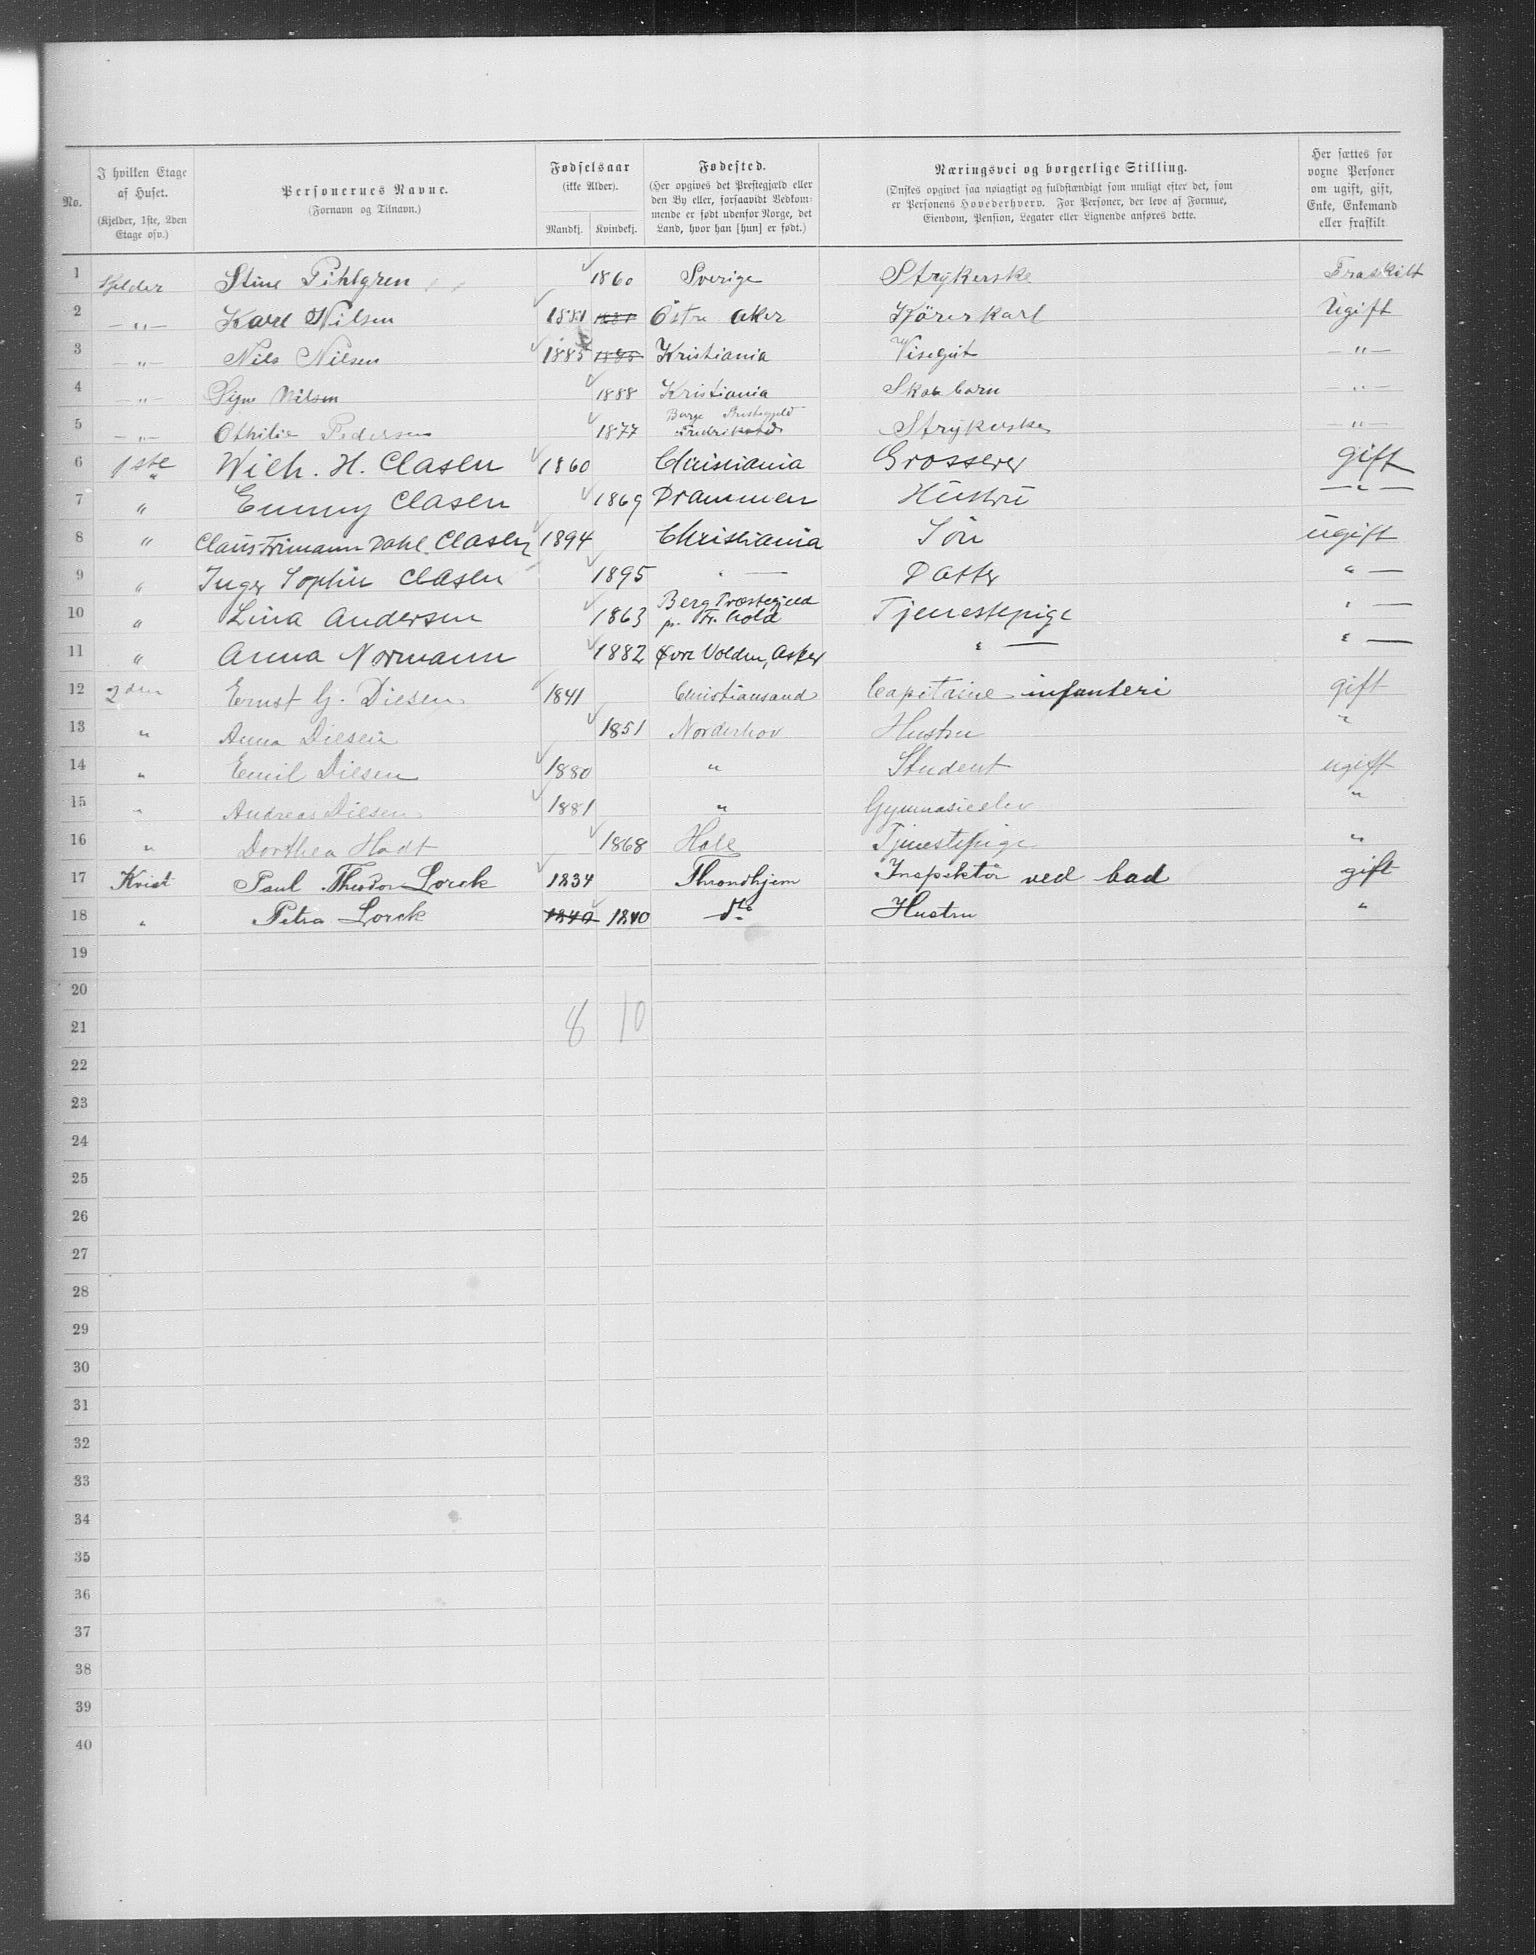 No. | I hvilken Etage af Huset. (Kjelder, 1ste, 2den Etage osv.) | Personernes Navne. (Fornavn og Tilnavn.) | Fødselsaar (ikke Alder). Mandkj. | Kvindekj. | Fødested. (Her opgives det Præstegjæld eller den By eller, forsaavidt Vedkommende er født udenfor Norge, det Land, hvor han [hun] er født.) | Næringsvei og borgerlige Stilling. (Ønskes opgivet saa nøiagtigt og fuldstændigt som muligt efter det, som er Personens Hovederhverv. For Personer, der leve af Formue, Eiendom, Pension, Legater eller Lignende anføres dette. | Her sættes for voxne Personer om ugift, gift, Enke, Enkemand eller fraskilt.
1 Kjelder Stine Pihlgren 1860 Sverige Strykerske Fraskilt
2 —„— Karl Nilsen 1881 1881 Östre Aker Kjörerkarl Ugift
3 —„— Nils Nilsen 1885 1885 Kristiania Visegut —„—
4 —„— Signe Nilsen 1888 Kristiania Skolebarn —„—
5 —„— Othilie Pedersen 1877 Borge Prestegjeld Fredrikstad Strykerske —„—
6 1ste Wilh. H. Clasen 1860 Christiania Grosserer gift
7 „ Emmy Clasen 1869 Drammen Hustru —„—
8 „ Claus Frimann Dahl Clasen 1894 Christiania Sön ugift
9 „ Inger Sophie Clasen 1895 „ — Datter „ —
10 „ Lina Andersen 1863 Berg Præstegjeld pr. Fr.hald Tjenestepige „ —
11 „ Anna Normann 1882 Øvre Volden, Asker „ — „ —
12 2den Ernst G. Diesen 1841 Christiansand Capitaine infanteri gift
13 „ Anna Diesen 1851 Norderhov Hustru „
14 „ Emil Diesen 1880 „ Student ugift
15 „ Andreas Diesen 1881 „ Gymnasieelev „
16 „ Dorthea Hadt 1868 Hole Tjenestepige „
17 Kvist Paul Theodor Lorck 1834 Throndhjem Inspektör ved bad gift
18 „ Petra Lorck 1840 1840 dto Hustru „
19
20
8 10
21
22
23
24
25
26
27
28
29
30
31
32
33
34
35
36
37
38
39
40